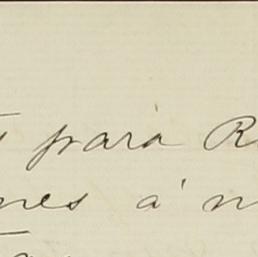 para R
nes á n